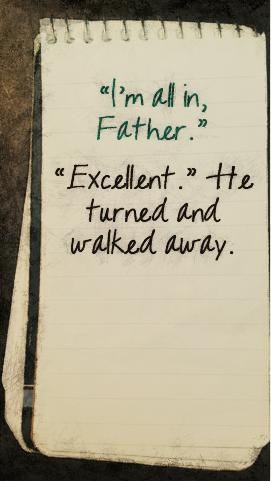 “I'm all in,
Father.”
“Excellent.” He
turned and
walked away.